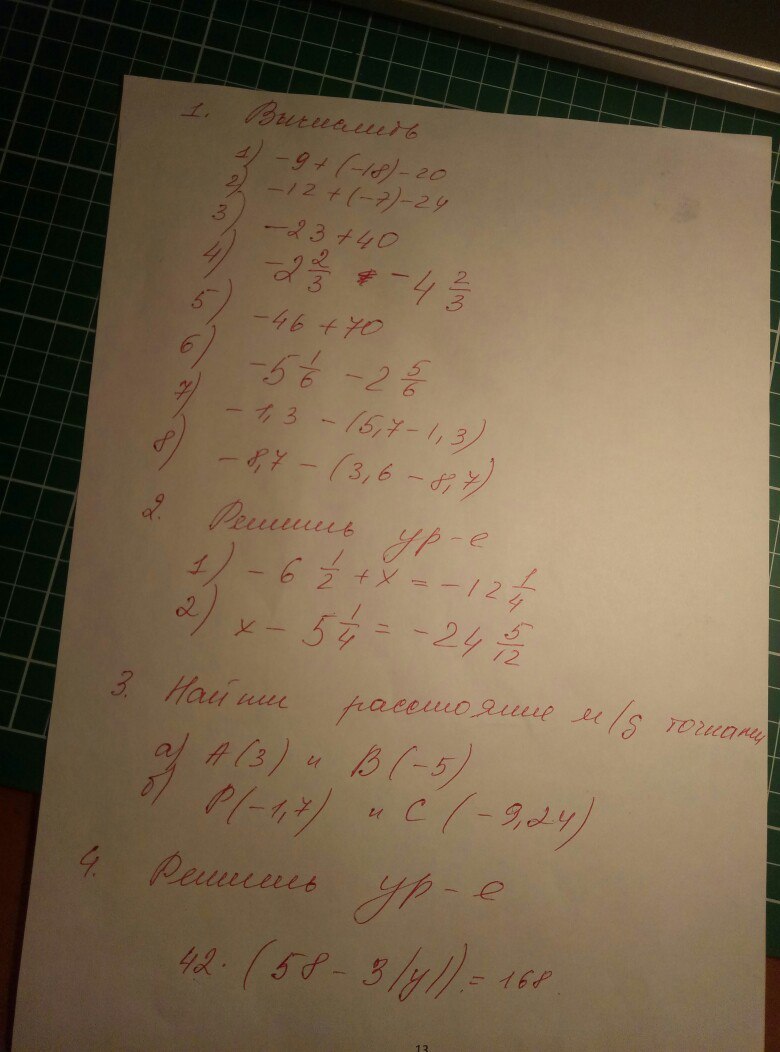 1. Вычислить
1) -9+(-18)-20
2) -12+(-7)-24
3) -23+40
4) -2 2/3 - 4 2/3
5) -46+70
6) -5 1/6 - 2 5/6
7) -1,3 - (5,7-1,3)
8) -8,7 - (3,6-8,7)
2. Решить ур-е
1) -6 1/2 + x = -12 1/4
2) x - 5 1/4 = -24 5/12
3. Найти расстояние м/д точками
а) A(3) и B(-5)
б) P(-1,7) и C(-9,24)
4. Решить ур-е
42·(58-3|y|)=168
13